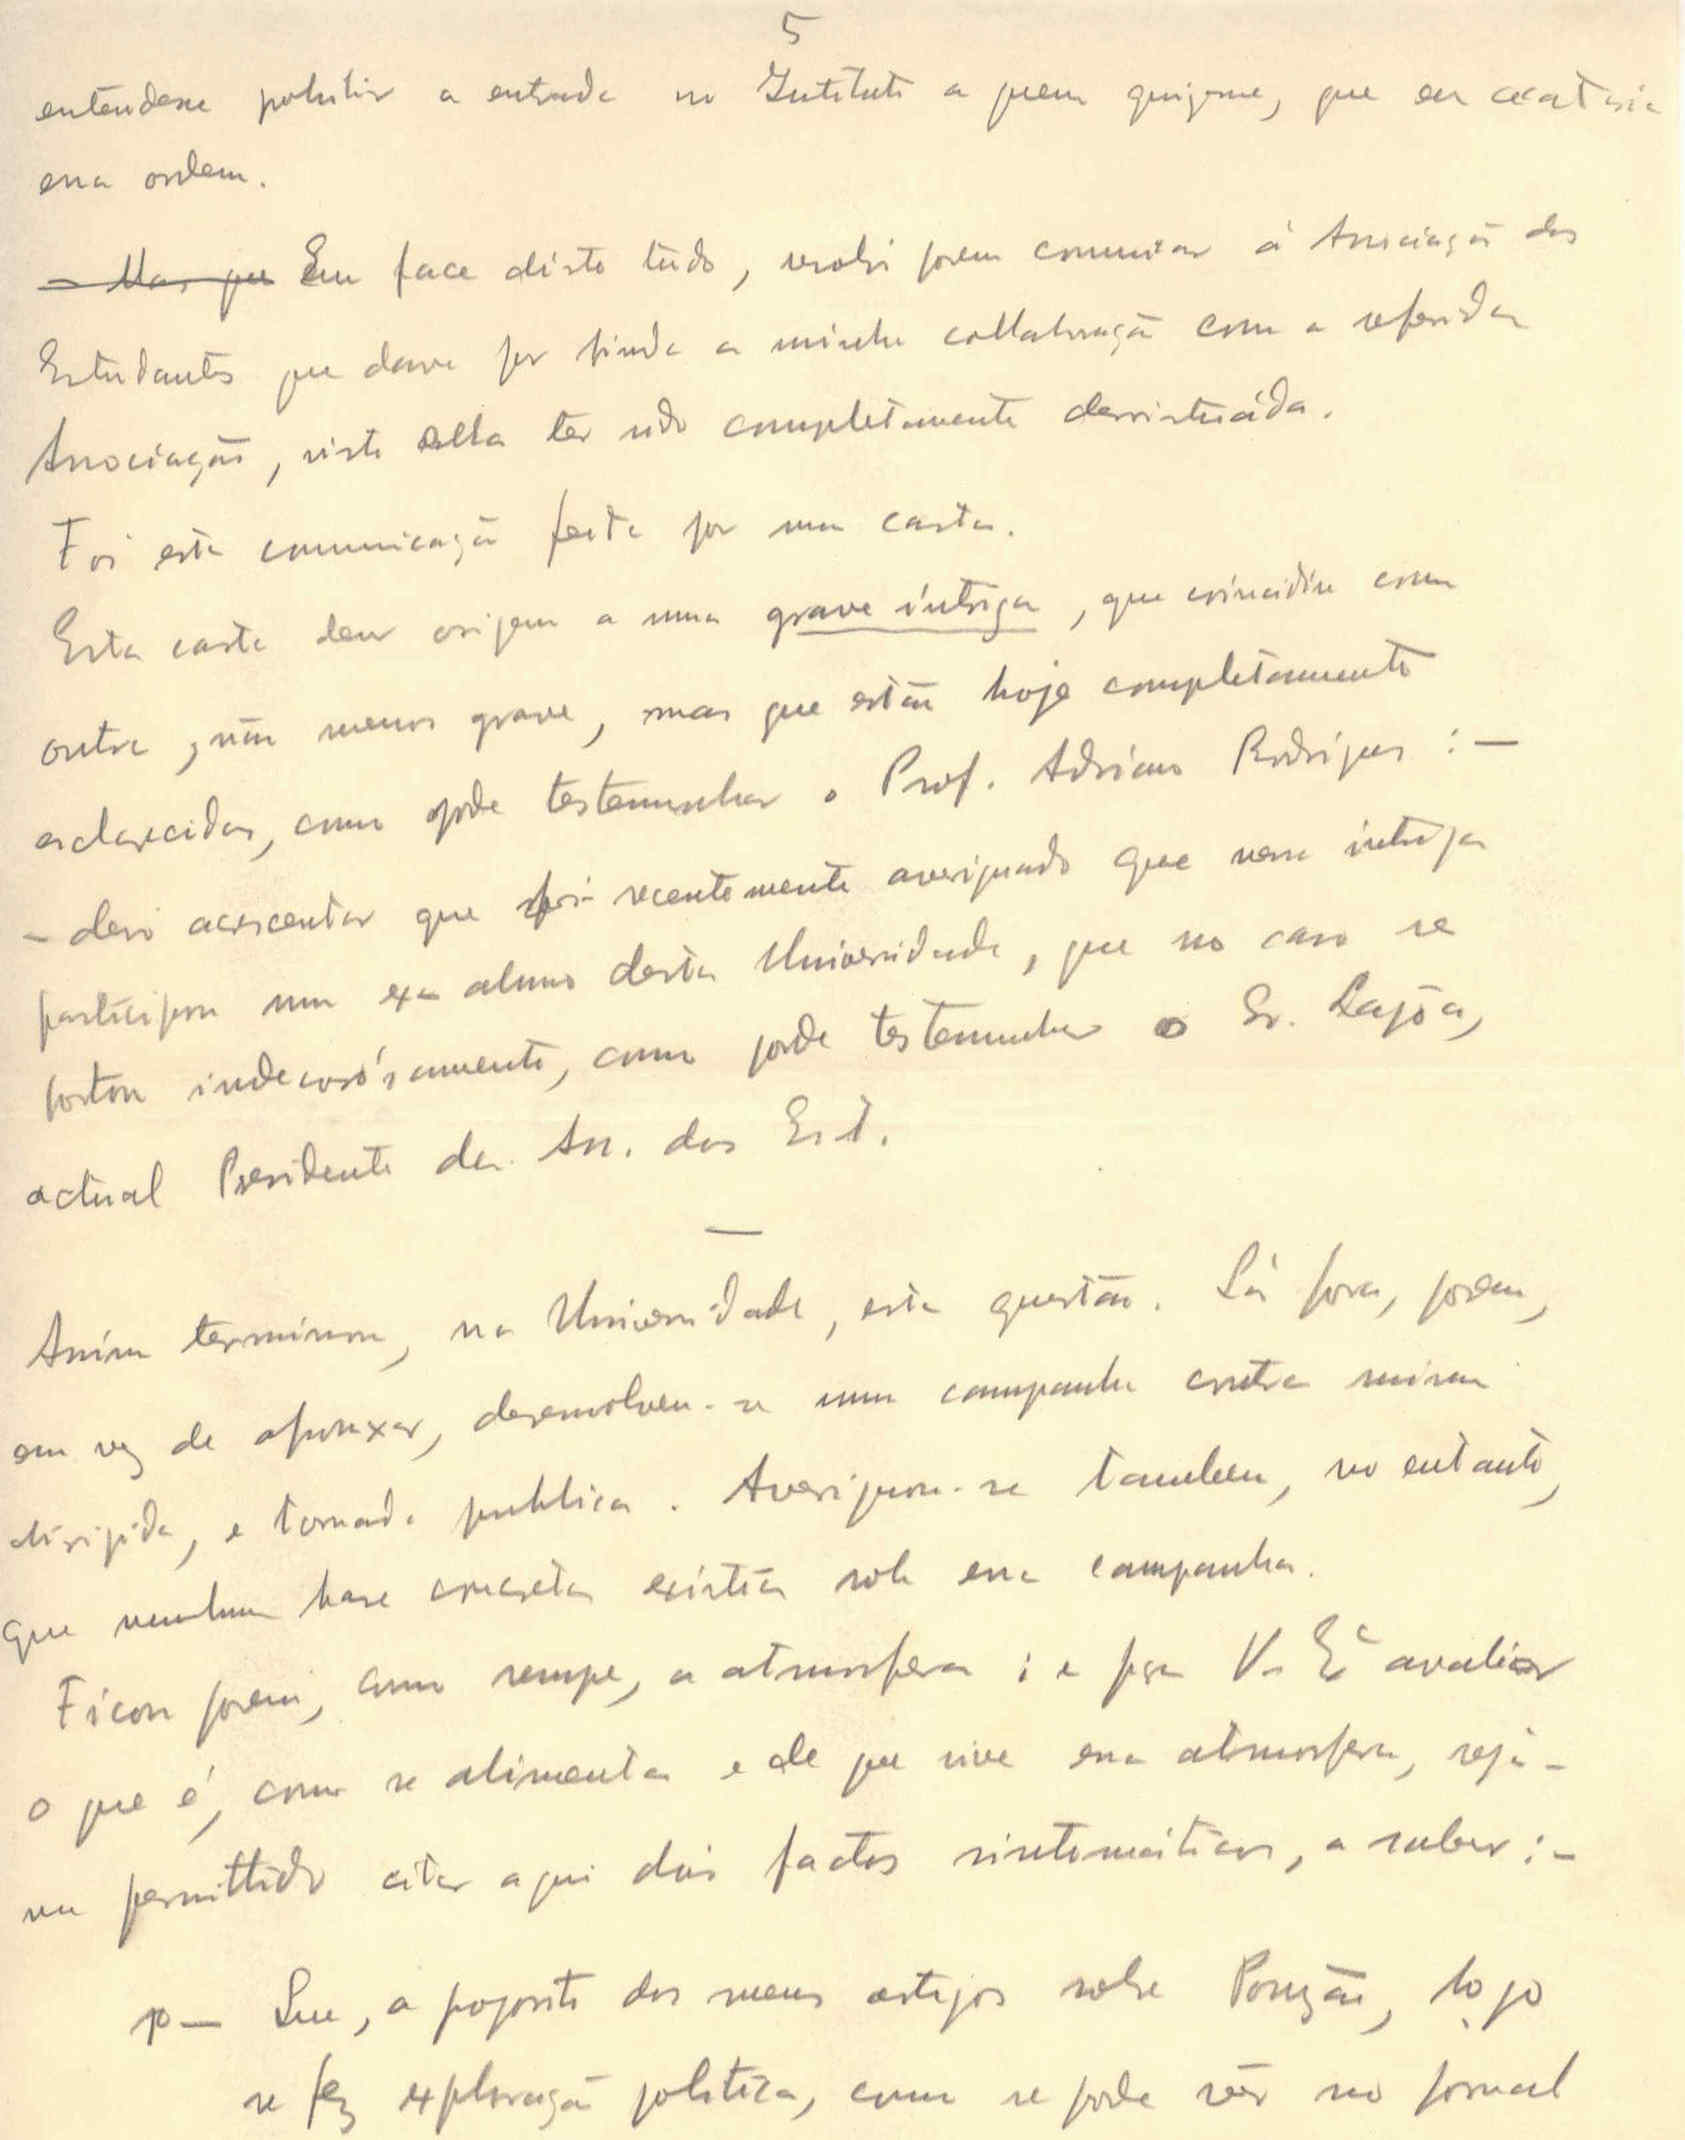 5
entendesse prohibir a entrada no Instituto a quem quizesse, que eu acataria
essa ordem.
- Mas que Em face disto tudo, resolvi porem comunicar á Associação dos
Estudantes que dava por finda a minha collaboração com a referida
Associação, visto ella ter sido completamente desvirtuáda.
Foi esta comunicação feita por uma carta.
Esta carta deu origem a uma grave intriga, que coincidiu com
outra, não menos grave, mas que estão hoje completamente
esclarecidas, como pode testemunhar o Prof. Adriano Rodrigues :-
- devo acrescentar que foi recentemente averiguado que nessa intriga
participou um ex-aluno desta Universidade, que no caso se
portou indecorósamente, como pode testemunhar o Sr. Lajôa,
actual Presidente da Ass. dos Est.
—
Assim terminou, na Universidade, esta questão. Lá fora, porem,
em vez de afrouxar, desenvolveu-se uma campanha contra mim
dirigida, e tornada publica. Averiguou-se tambem, no entanto,
que nenhuma base concreta existia sob essa campanha.
Ficou porem, como sempre, a atmosfera ; e para V. Exª avaliar
o que é, como se alimenta e de que vive essa atmosfera, seja-
me permittido citar aqui dois factos sintomáticos, a saber :-
1º— Que, a proposito dos meus artigos sobre Ponção, logo
se fez exploração politica, como se pode vêr no jornal